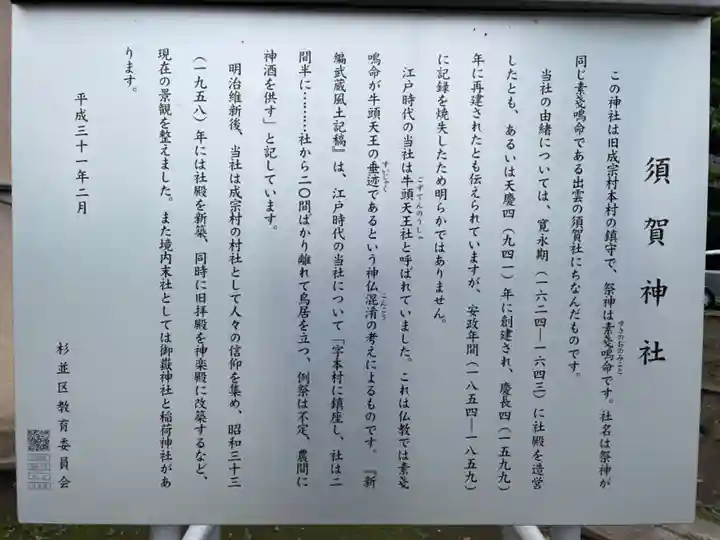 須賀神社
この神社は旧成宗村本村の鎮守で、祭神は素戔嗚命です。社名は祭神が
すさのおのみこと
同じ素戔嗚命である出雲の須賀社にちなんだものです。
当社の由緒については、寛永期(一六二四―一六四三)に社殿を造営
したとも、あるいは天慶四(九四一)年に創建され、慶長四(一五九九)
年に再建されたとも伝えられていますが、安政年間(一八五四―一八五九)
に記録を焼失したため明らかではありません。
江戸時代の当社は牛頭天王社と呼ばれていました。これは仏教では素戔
ごずてんのうしゃ
嗚命が牛頭天王の垂迹であるという神仏混淆の考えによるものです。『新
すいじゃく
こんこう
編武蔵風土記稿』は、江戸時代の当社について「字本村に鎮座し、社は二
間半に………社から二〇間ばかり離れて鳥居を立つ、例祭は不定、農間に
神酒を供す」と記しています。
明治維新後、当社は成宗村の村社として人々の信仰を集め、昭和三十三
(一九五八)年には社殿を新築、同時に旧拝殿を神楽殿に改築するなど、
現在の景観を整えました。また境内末社としては御嶽神社と稲荷神社があ
ります。
平成三十一年二月
杉並区教育委員会